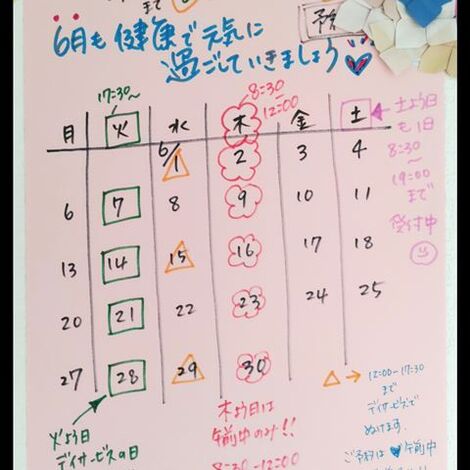 まで
予
6月も健康で元気に
過ごしていきましょう
17:30〜
8:30
〜
12:00
月 火 水 木 金 土
6/1 2 3 4
6 7 8 9 10 11
13 14 15 16 17 18
20 21 22 23 24 25
27 28 29 30
土よう日
も1日
8:30
〜
19:00
まで
受付中
火よう日
デイサービスの日
木よう日は
午前中のみ!!
8:30-12:00
△→ 12:00-17:30
まで
デイサービスで
ぬけます。
ご予約は♥午前中